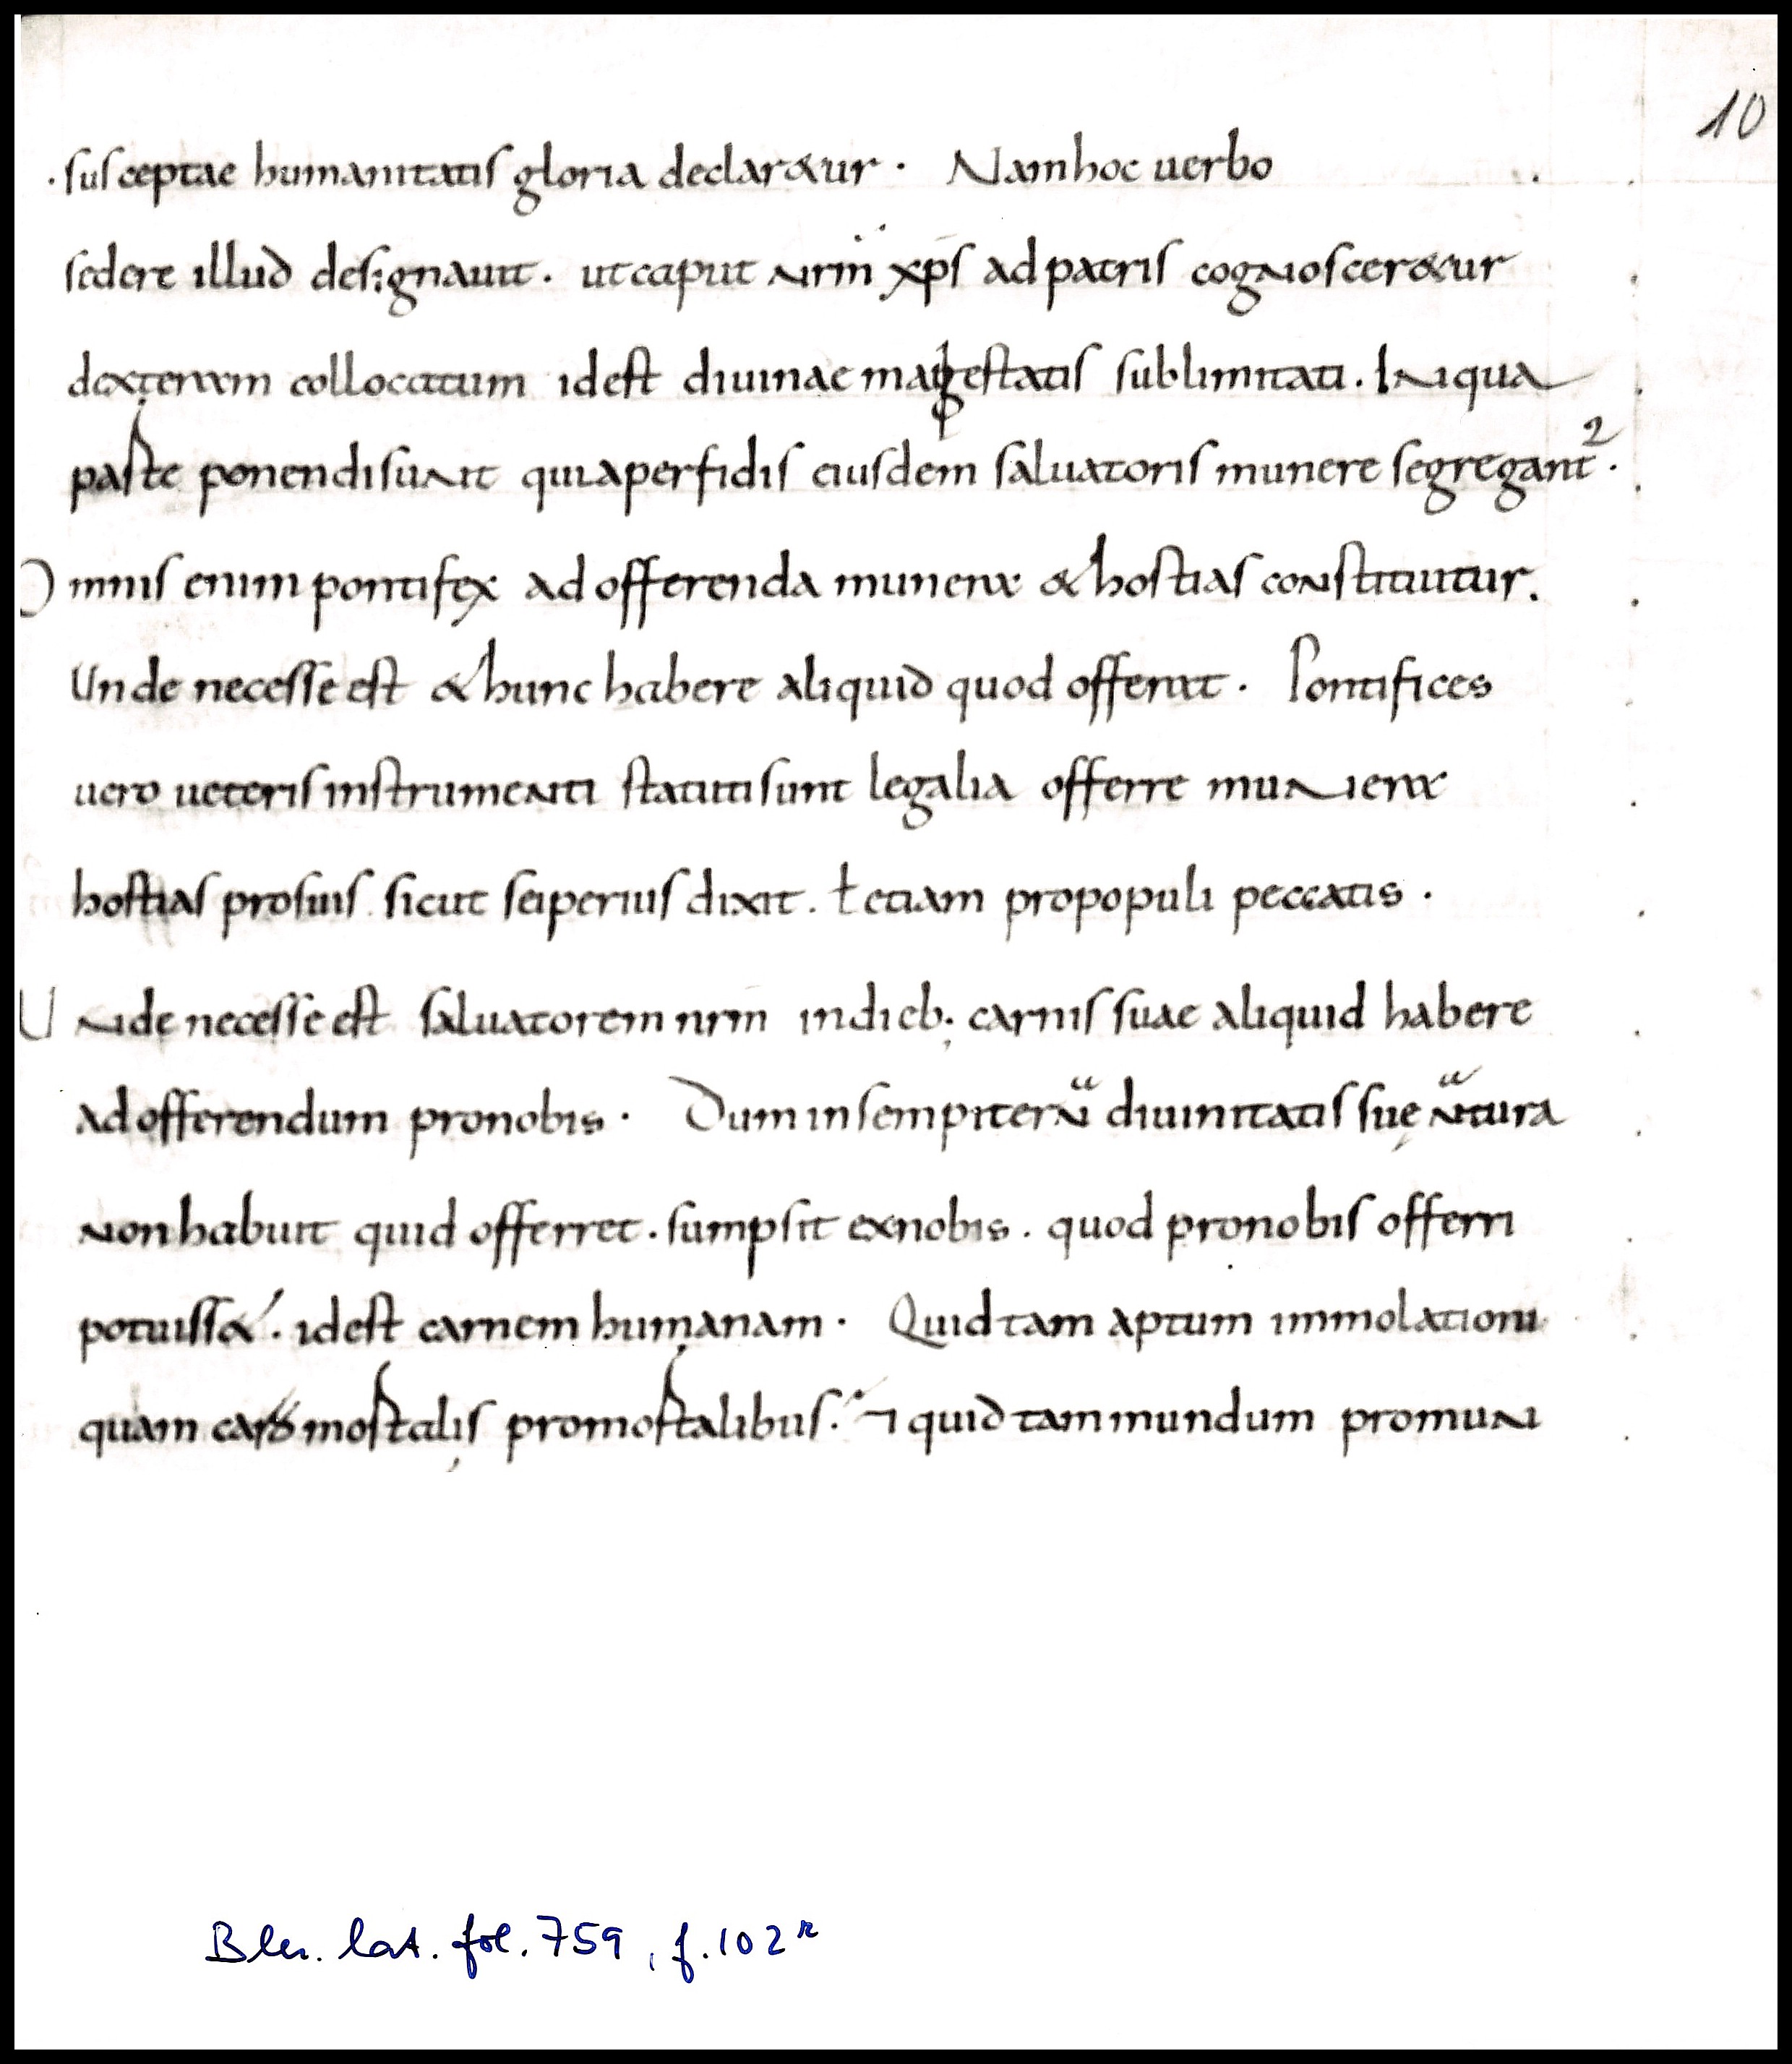 10
· susceptae humanitatis gloria declar&ur · Nam hoc uerbo
sedere illud designauit · ut caput nrm̄ xp̄s ad patris cognoscer&ur
dexteram collocatum id est diuinae magestatis sublimitati · In qua
parte ponendi sunt qui a perfidis eiusdem saluatoris munere segregant2 ·
Omnis enim pontifex ad offerenda munera & hostias constituitur.
Unde necesse est & hunc habere aliquid quod offerat · Pontifices
uero ueteris instrumenti statuti sunt legalia offerre munera
hostias pro suis sicut superius dixit · ł etiam pro populi peccatis ·
Unde necesse est saluatorem nrm in dieb; carnis suae aliquid habere
ad offerendum pro nobis · Dum in sempiterna diuinitatis suę natura
non habuit quid offerret · sumpsit ex nobis · quod pro nobis offerri
potuiss& · id est carnem humanam · Quid tam aptum immolationi
quam caro mortalis pro mortalibus · quid tam mundum pro mun
Bln. lat. fol. 759, f. 102r